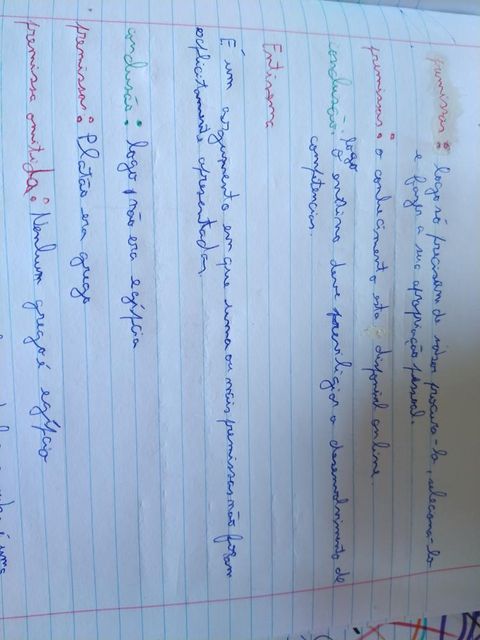 premissa: logo só precisam de saber procura-lo, seleciona-lo
e fazer a sua apropriação pessoal.
premissa: o conhecimento está disponível online.
conclusão: logo o ensino deve previligiar o desenvolvimento de
competências.
Entimema
É um argumento em que uma ou mais premissas não foram
explicitamente apresentadas.
conclusão: logo, não era egípcio
premissa: Platão era grego
premissa omitida: Nenhum grego é egípcio
é uma